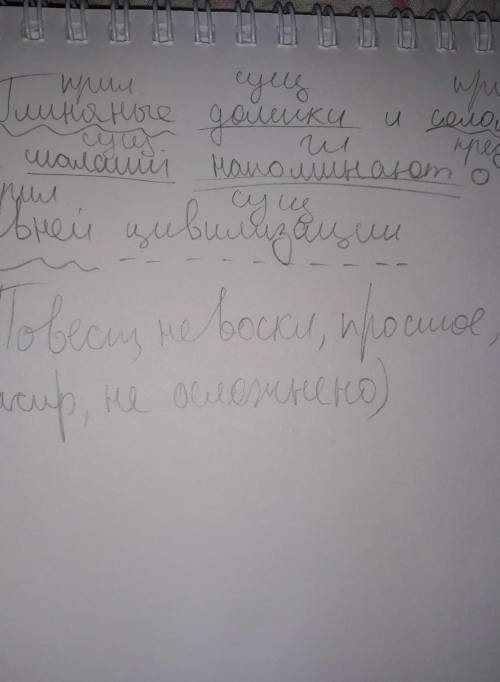 прил сущ при
Глиняные домики и соло
сущ гл пред
шалаши напоминают о
рил сущ
вней цивилизации
Повест, невоскл, простое,
аспр, не осложнено)